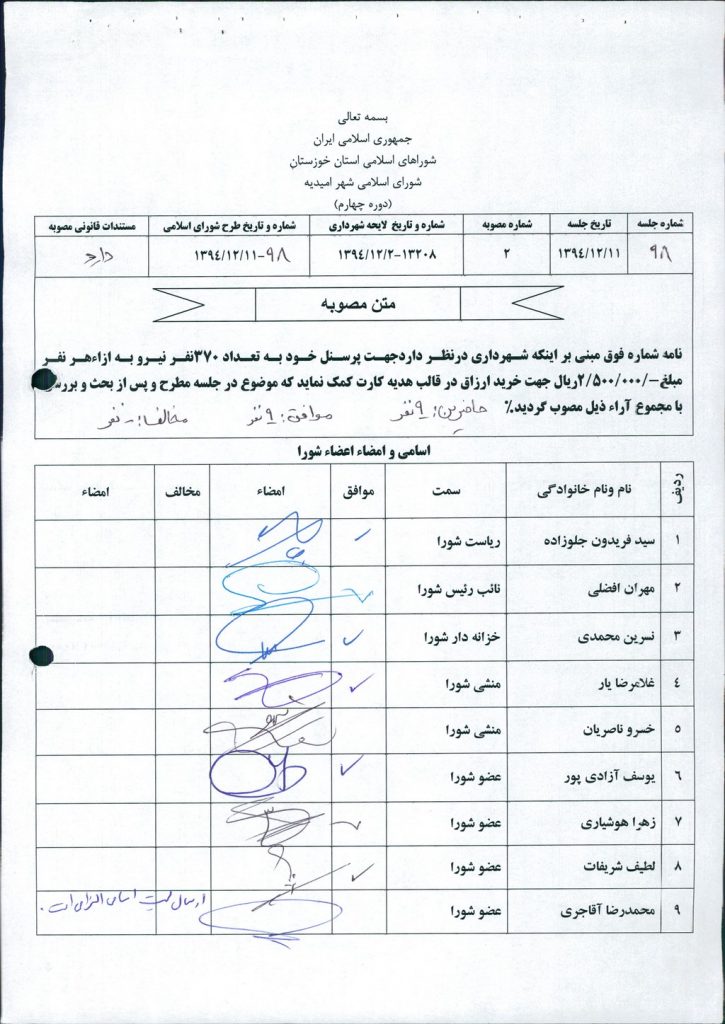 بسمه تعالی
جمهوری اسلامی ایران
شوراهای اسلامی استان خوزستان
شورای اسلامی شهر امیدیه
(دوره چهارم)
شماره جلسه تاریخ جلسه شماره مصوبه شماره و تاریخ لایحه شهرداری شماره و تاریخ طرح شورای اسلامی مستندات قانونی مصوبه
۹۸ ۱۳۹٤/۱۲/۱۱ ۲ ۱۳۹٤/۱۲/۲-۱۳۲۰۸ ۱۳۹٤/۱۲/۱۱-۹۸ دارد
متن مصوبه
نامه شماره فوق مبنی بر اینکه شهرداری درنظر داردجهت پرسنل خود به تعداد ۳۷۰نفر نیرو به ازاءهر نفر
مبلغ-/۲/۵۰۰/۰۰۰ریال جهت خرید ارزاق در قالب هدیه کارت کمک نماید که موضوع در جلسه مطرح و پس از بحث و بررس
با مجموع آراء ذیل مصوب گردید.٪ حاضرین: ۹ نفر موافق: ۹ نفر مخالف: ۰ نفر
اسامی و امضاء اعضاء شورا
ردیف نام ونام خانوادگی سمت موافق امضاء مخالف امضاء
۱ سید فریدون جلوزاده ریاست شورا
۲ مهران افضلی نائب رئیس شورا
۳ نسرین محمدی خزانه دار شورا
٤ غلامرضا یار منشی شورا
۵ خسرو ناصریان منشی شورا
٦ یوسف آزادی پور عضو شورا
۷ زهرا هوشیاری عضو شورا
۸ لطیف شریفات عضو شورا
۹ محمدرضا آقاجری عضو شورا ارسال لیست اسامی الزامی است.